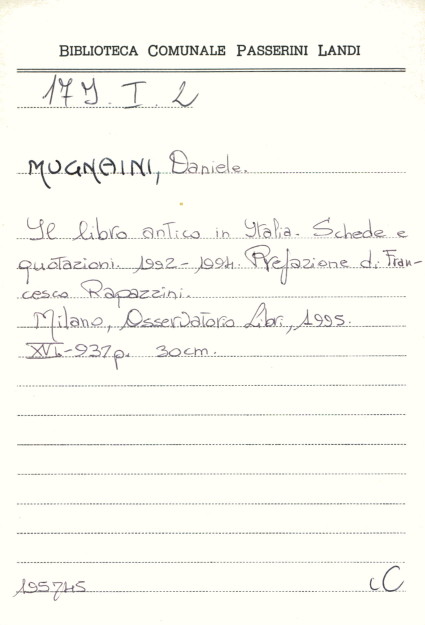 BIBLIOTECA COMUNALE PASSERINI LANDI
17 Y. I. 2
MUGNAINI, Daniele.
Il libro antico in Italia. Schede e
quotazioni. 1992-1994. Prefazione di Fran-
cesco Rapazzini.
Milano, Osservatorio Libri, 1995.
XVI-937 p. 30 cm.
195745
cC